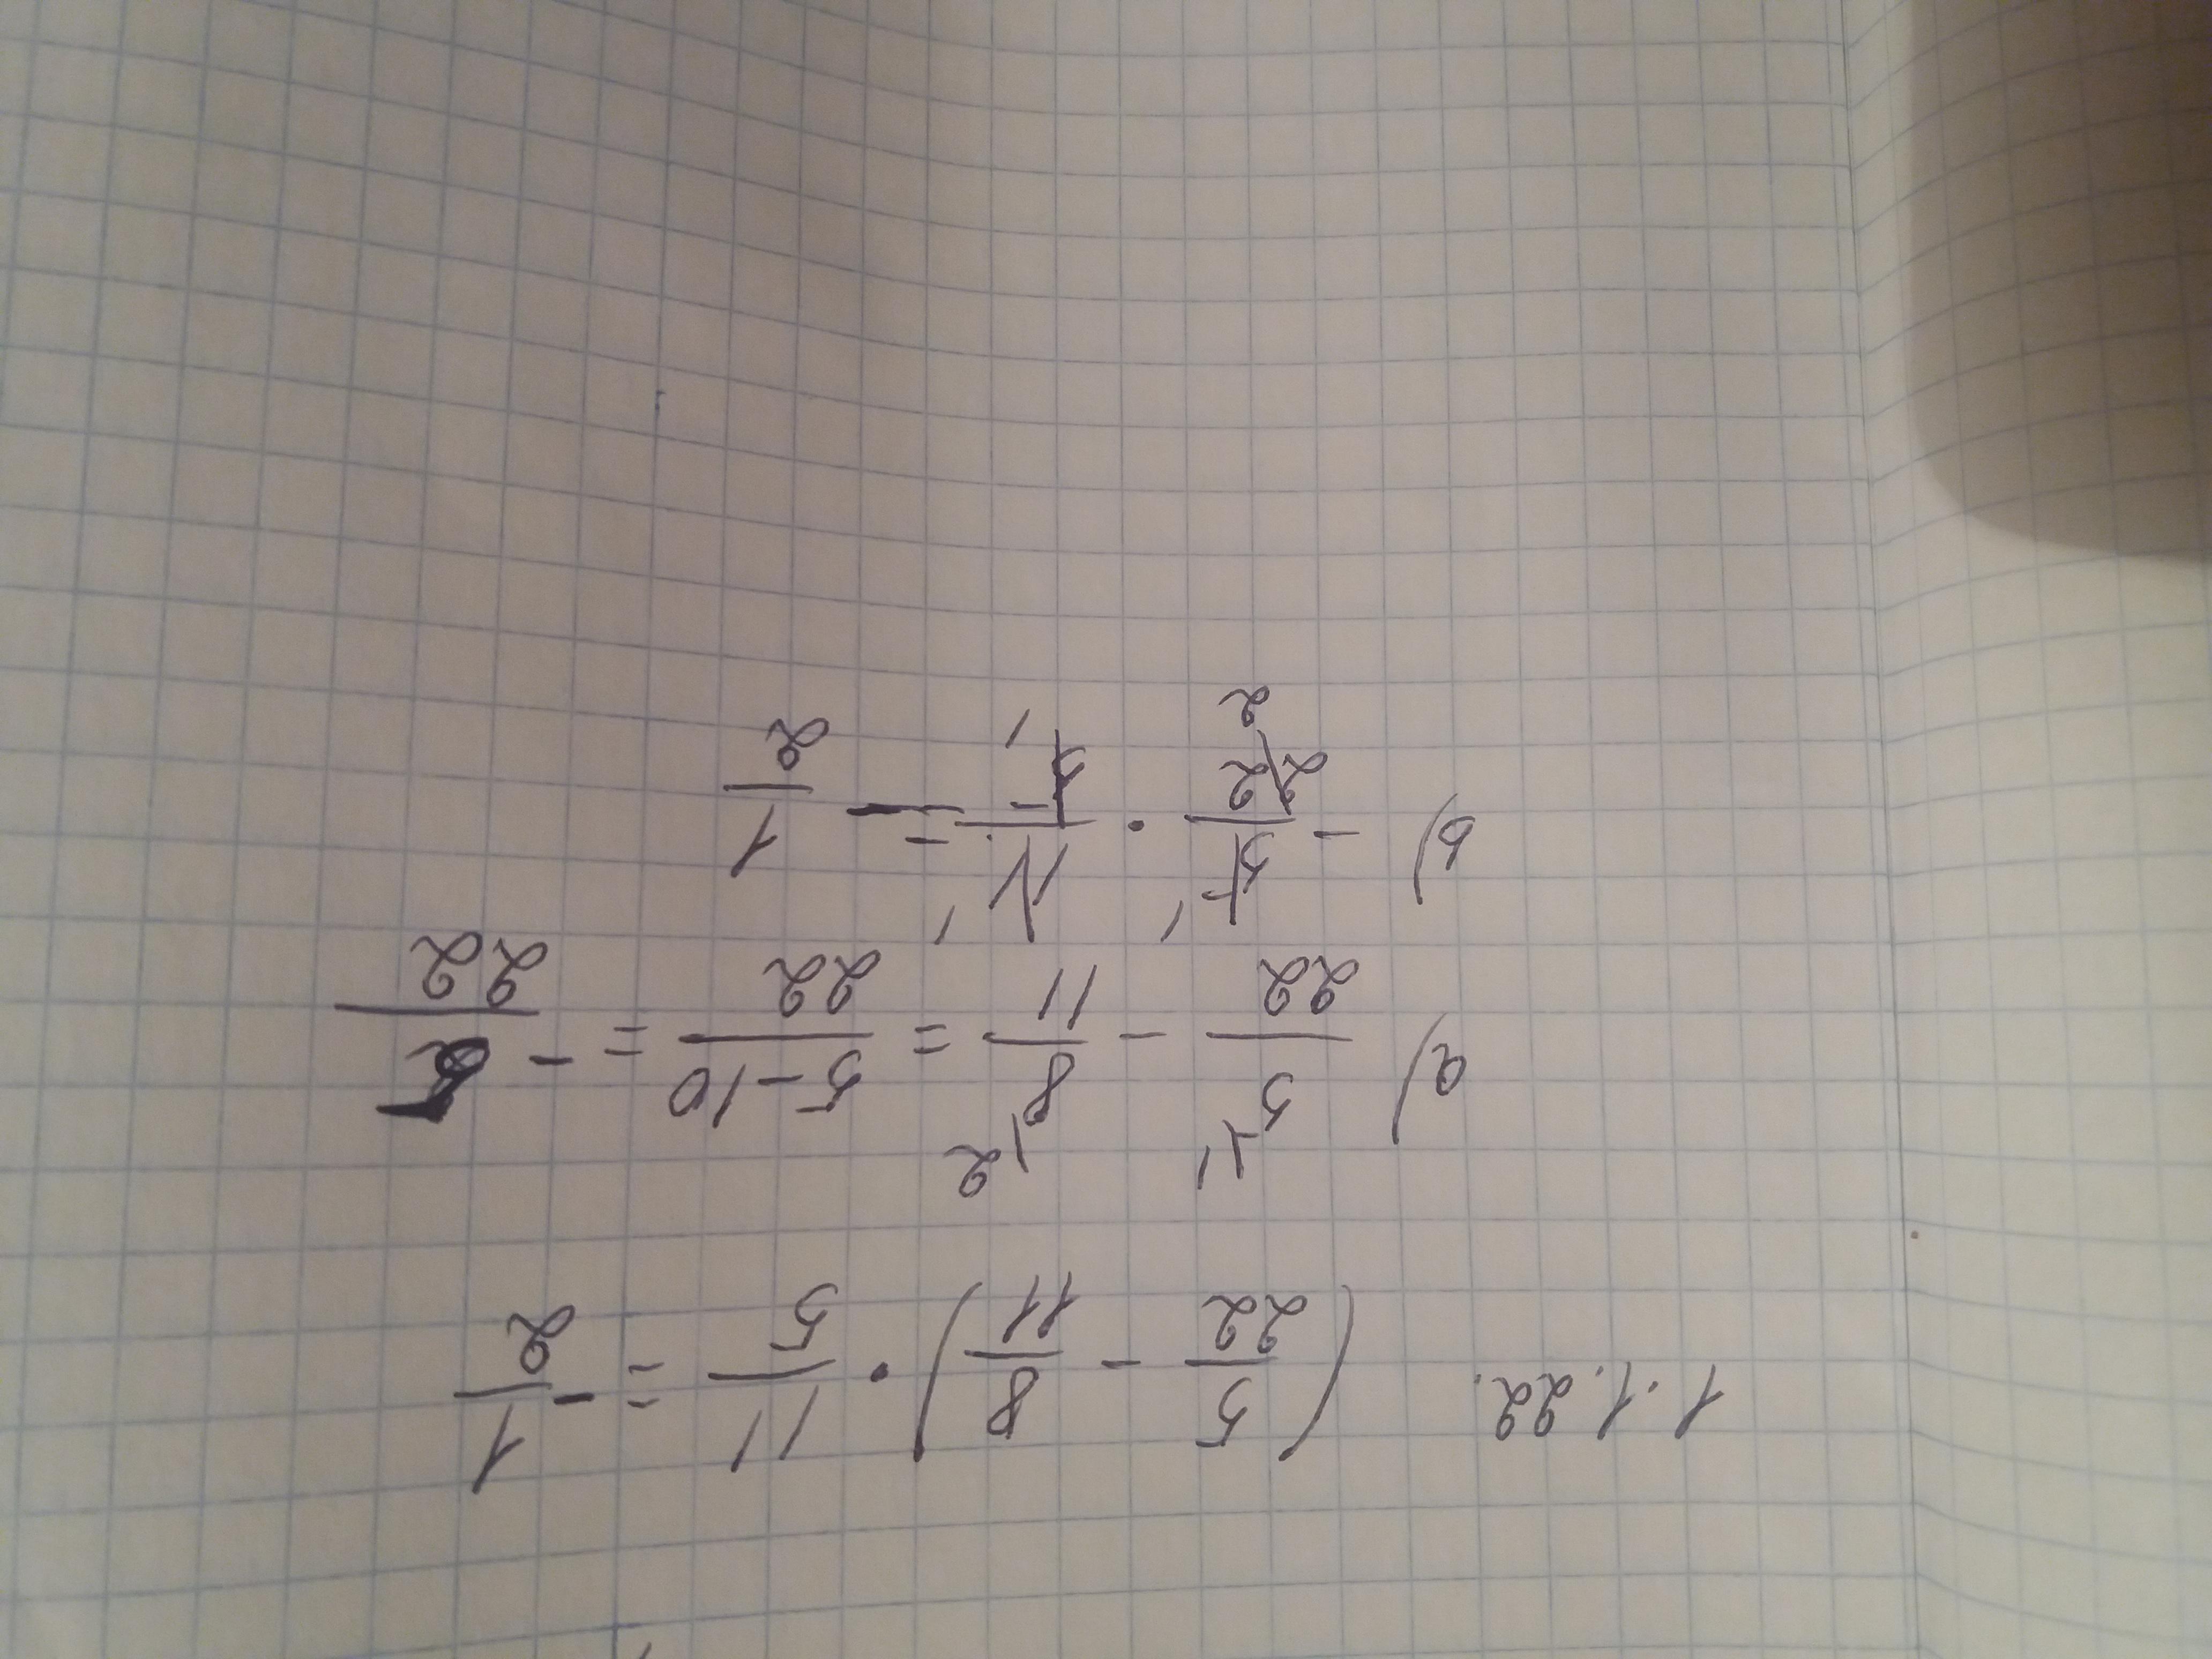 1.1.22. (5/22 - 8/11) · 11/5 = -1/2
a) 5\1/22 - 8\2/11 = 5-10/22 = -5/22
b) -5 1/22 2 · 11 1/5 1 = -1/2